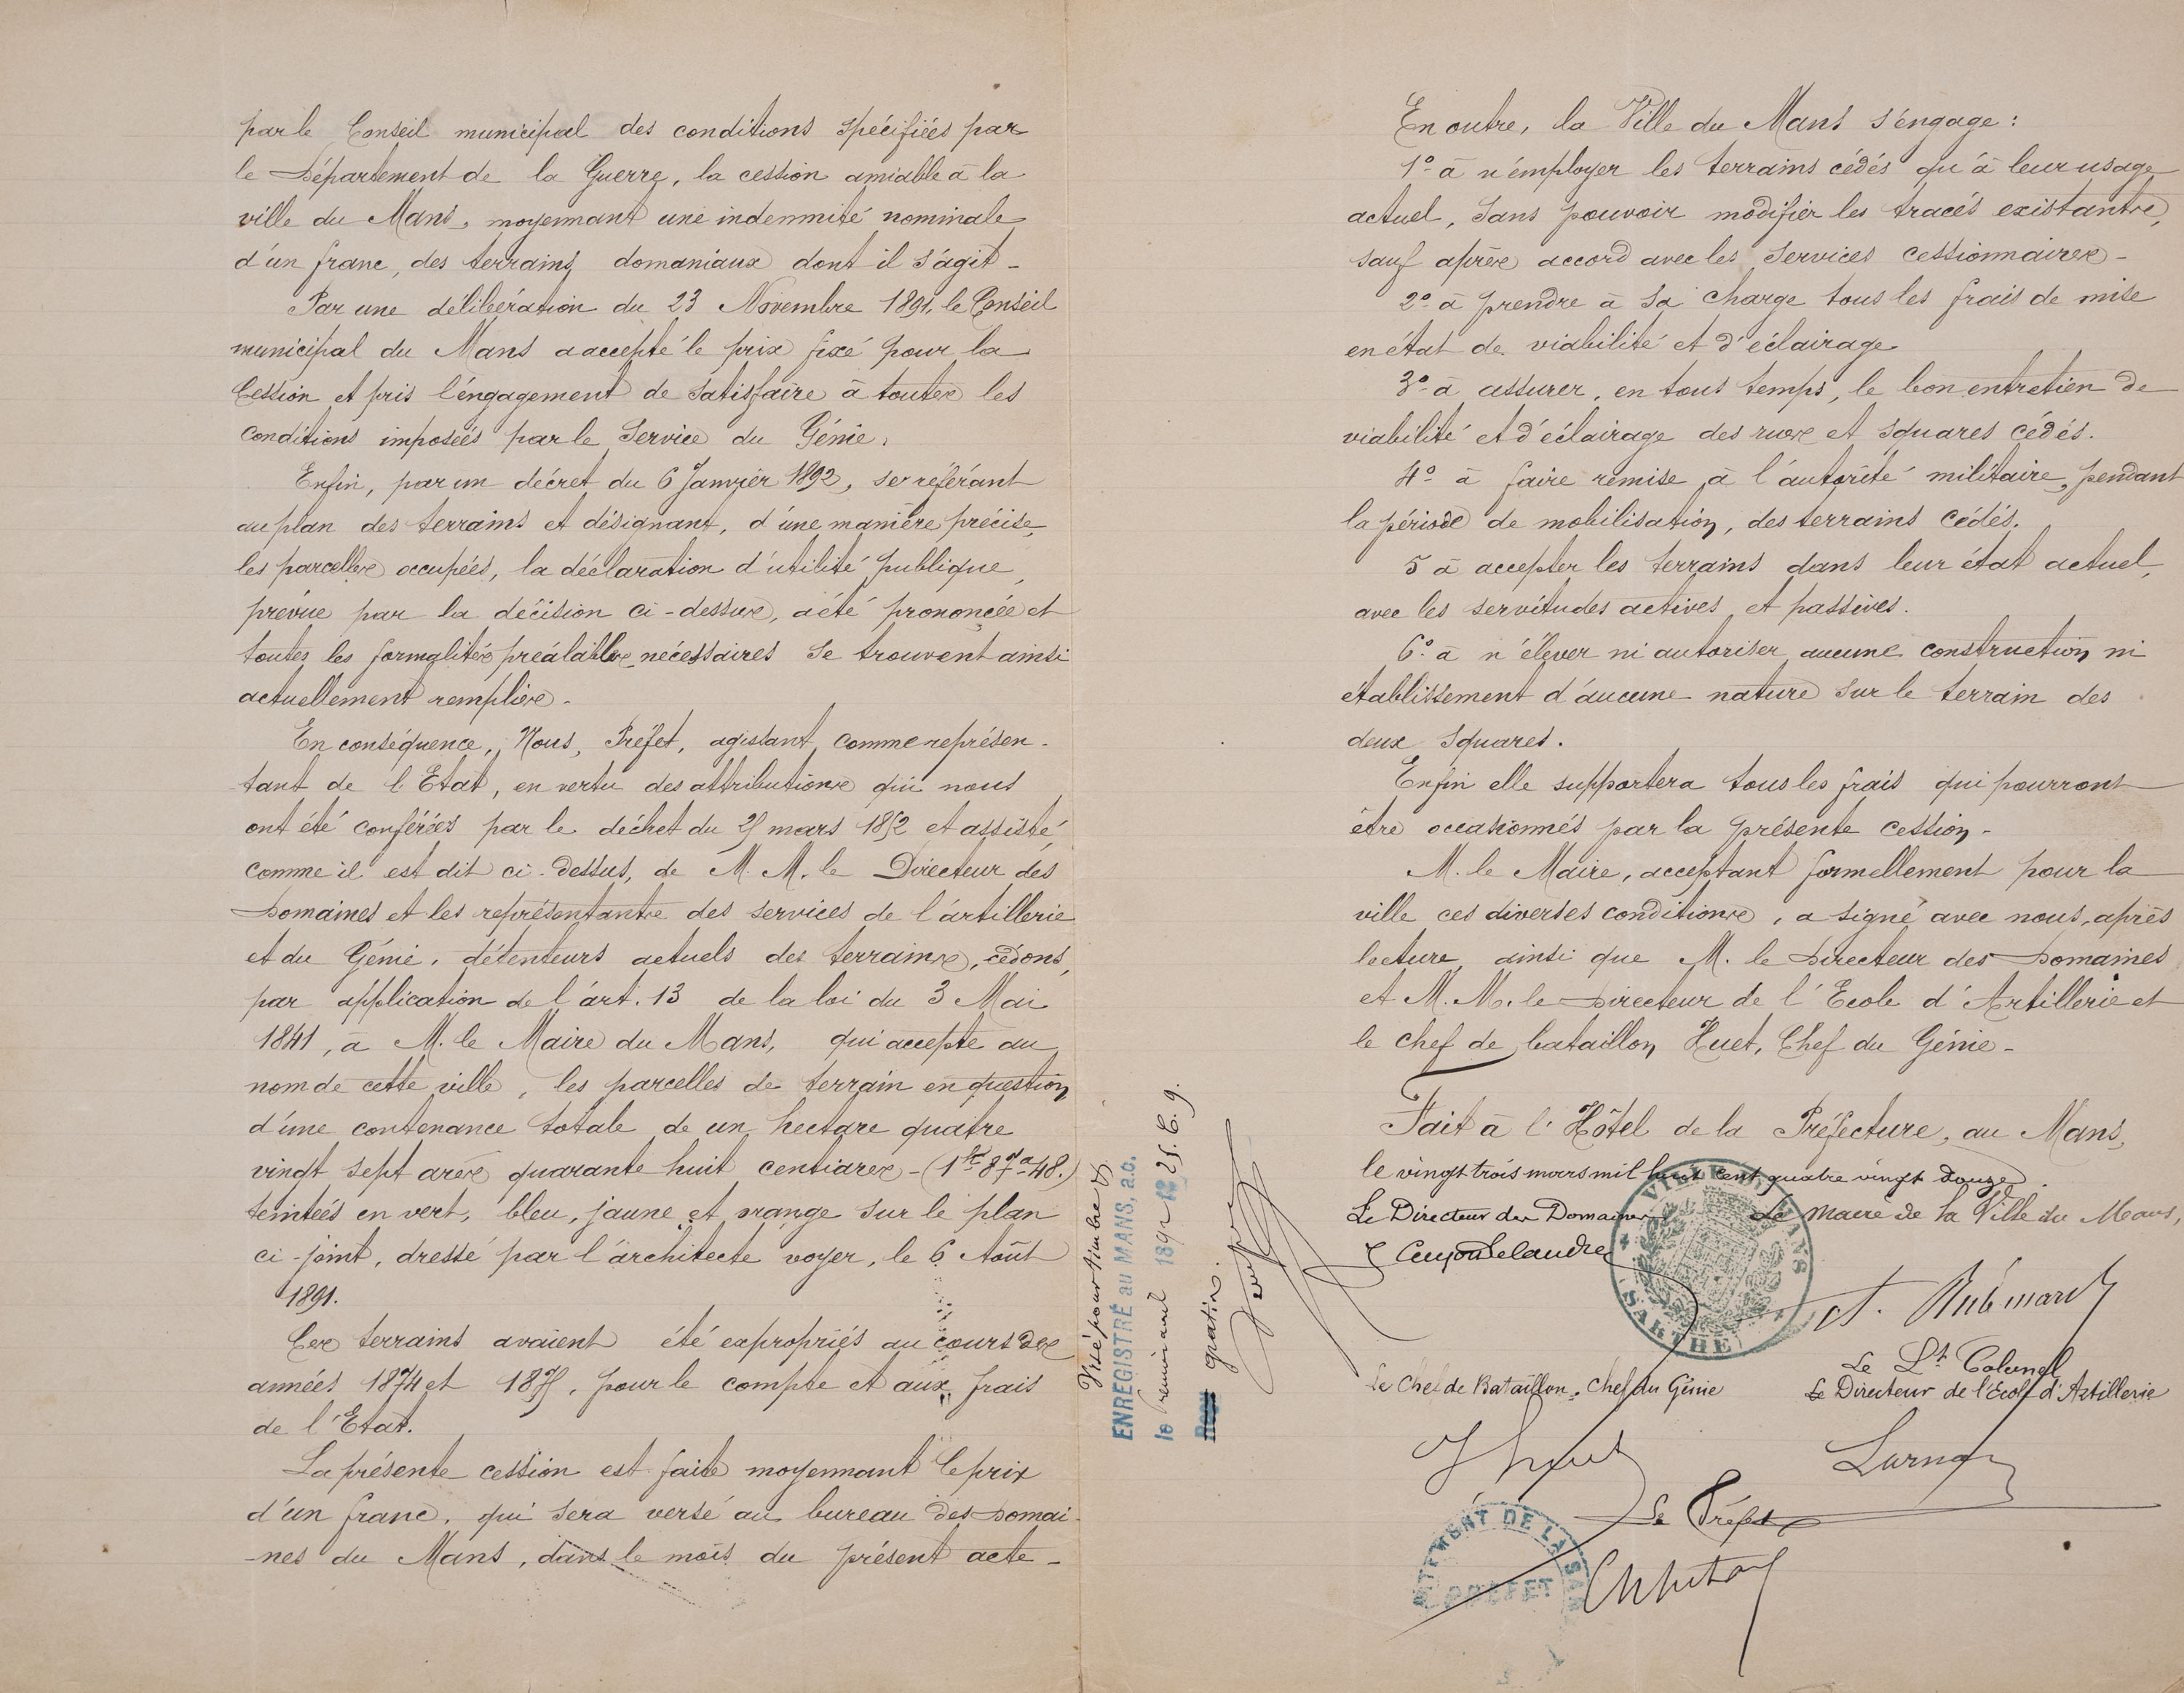 par le Conseil municipal des conditions spécifiées par
le Département de la Guerre, la cession amiable à la
ville du Mans, moyennant une indemnité nominale
d'un franc, des terrains domaniaux dont il s'agit -
Par une délibération du 23 Novembre 1891, le Conseil
municipal du Mans a accepté le prix fixé pour la
Cession et pris l'engagement de satisfaire à toutes les
conditions imposées par le Service du Génie.
Enfin, par un décret du 6 Janvier 1892, se référant
au plan des terrains et désignant, d'une manière précise,
les parcelles occupées, la déclaration d'utilité publique,
prévue par la décision ci-dessus, a été prononcée et
toutes les formalités préalables nécessaires se trouvent ainsi
actuellement remplies -
En conséquence, Nous, Préfet, agissant comme représen-
tant de l'Etat, en vertu des attributions qui nous
ont été conférées par le décret du 25 mars 1852 et assisté,
comme il est dit ci-dessus, de M. M. le Directeur des
Domaines et les représentants des services de l'artillerie
et du Génie, détenteurs actuels des terrains, cédons,
par application de l'art. 13 de la loi du 3 Mai
1841, à M. le Maire du Mans, qui accepte au
nom de cette ville, les parcelles de terrain en question
d'une contenance totale de un hectare quatre
vingt sept ares quarante huit centiares - (1ha 87a 48.)
teintées en vert, bleu, jaune et orange sur le plan
ci-joint, dressé par l'architecte voyer, le 6 Août
1891.
Ces terrains avaient été expropriés au cours des
années 1874 et 1875, pour le compte et aux frais
de l'Etat.
La présente cession est faite moyennant le prix
d'un franc, qui sera versé au bureau des Domai-
-nes du Mans, dans le mois du présent acte -
Visé pour timbre &
ENREGISTRÉ au MANS, a.c.
le premier avril 1892 f. 25. C. 9.
gratis.
En outre, la Ville du Mans s'engage :
1º à n'employer les terrains cédés qu'à leur usage
actuel, sans pouvoir modifier les tracés existants,
sauf après accord avec les services cessionnaires -
2º à prendre à sa charge tous les frais de mise
en état de viabilité et d'éclairage
3º à assurer, en tous temps, le bon entretien de
viabilité et d'éclairage des rues et squares cédés.
4º à faire remise à l'autorité militaire, pendant
la période de mobilisation, des terrains cédés.
5 à accepter les terrains dans leur état actuel,
avec les servitudes actives et passives.
6º à n'élever ni autoriser aucune construction ni
établissement d'aucune nature sur le terrain des
deux squares.
Enfin elle supportera tous les frais qui pourront
être occasionnés par la présente cession -
M. le Maire, acceptant formellement pour la
ville ces diverses conditions, a signé avec nous, après
lecture, ainsi que M. le Directeur des Domaines
et M. M. le Directeur de l'Ecole d'Artillerie et
le chef de bataillon Huet, Chef du Génie -
Fait à l'Hôtel de la Préfecture, au Mans,
le vingt trois mars mil huit cent quatre vingt douze.
Le Directeur des Domaines Le Maire de la Ville du Mans,
VILLE DU MANS
(SARTHE)
Le Lt Colonel
Le Chef de Bataillon, Chef du Génie Le Directeur de l'Ecole d'Artillerie
Huet
Le Préfet
DE LA SAR
PRÉFET